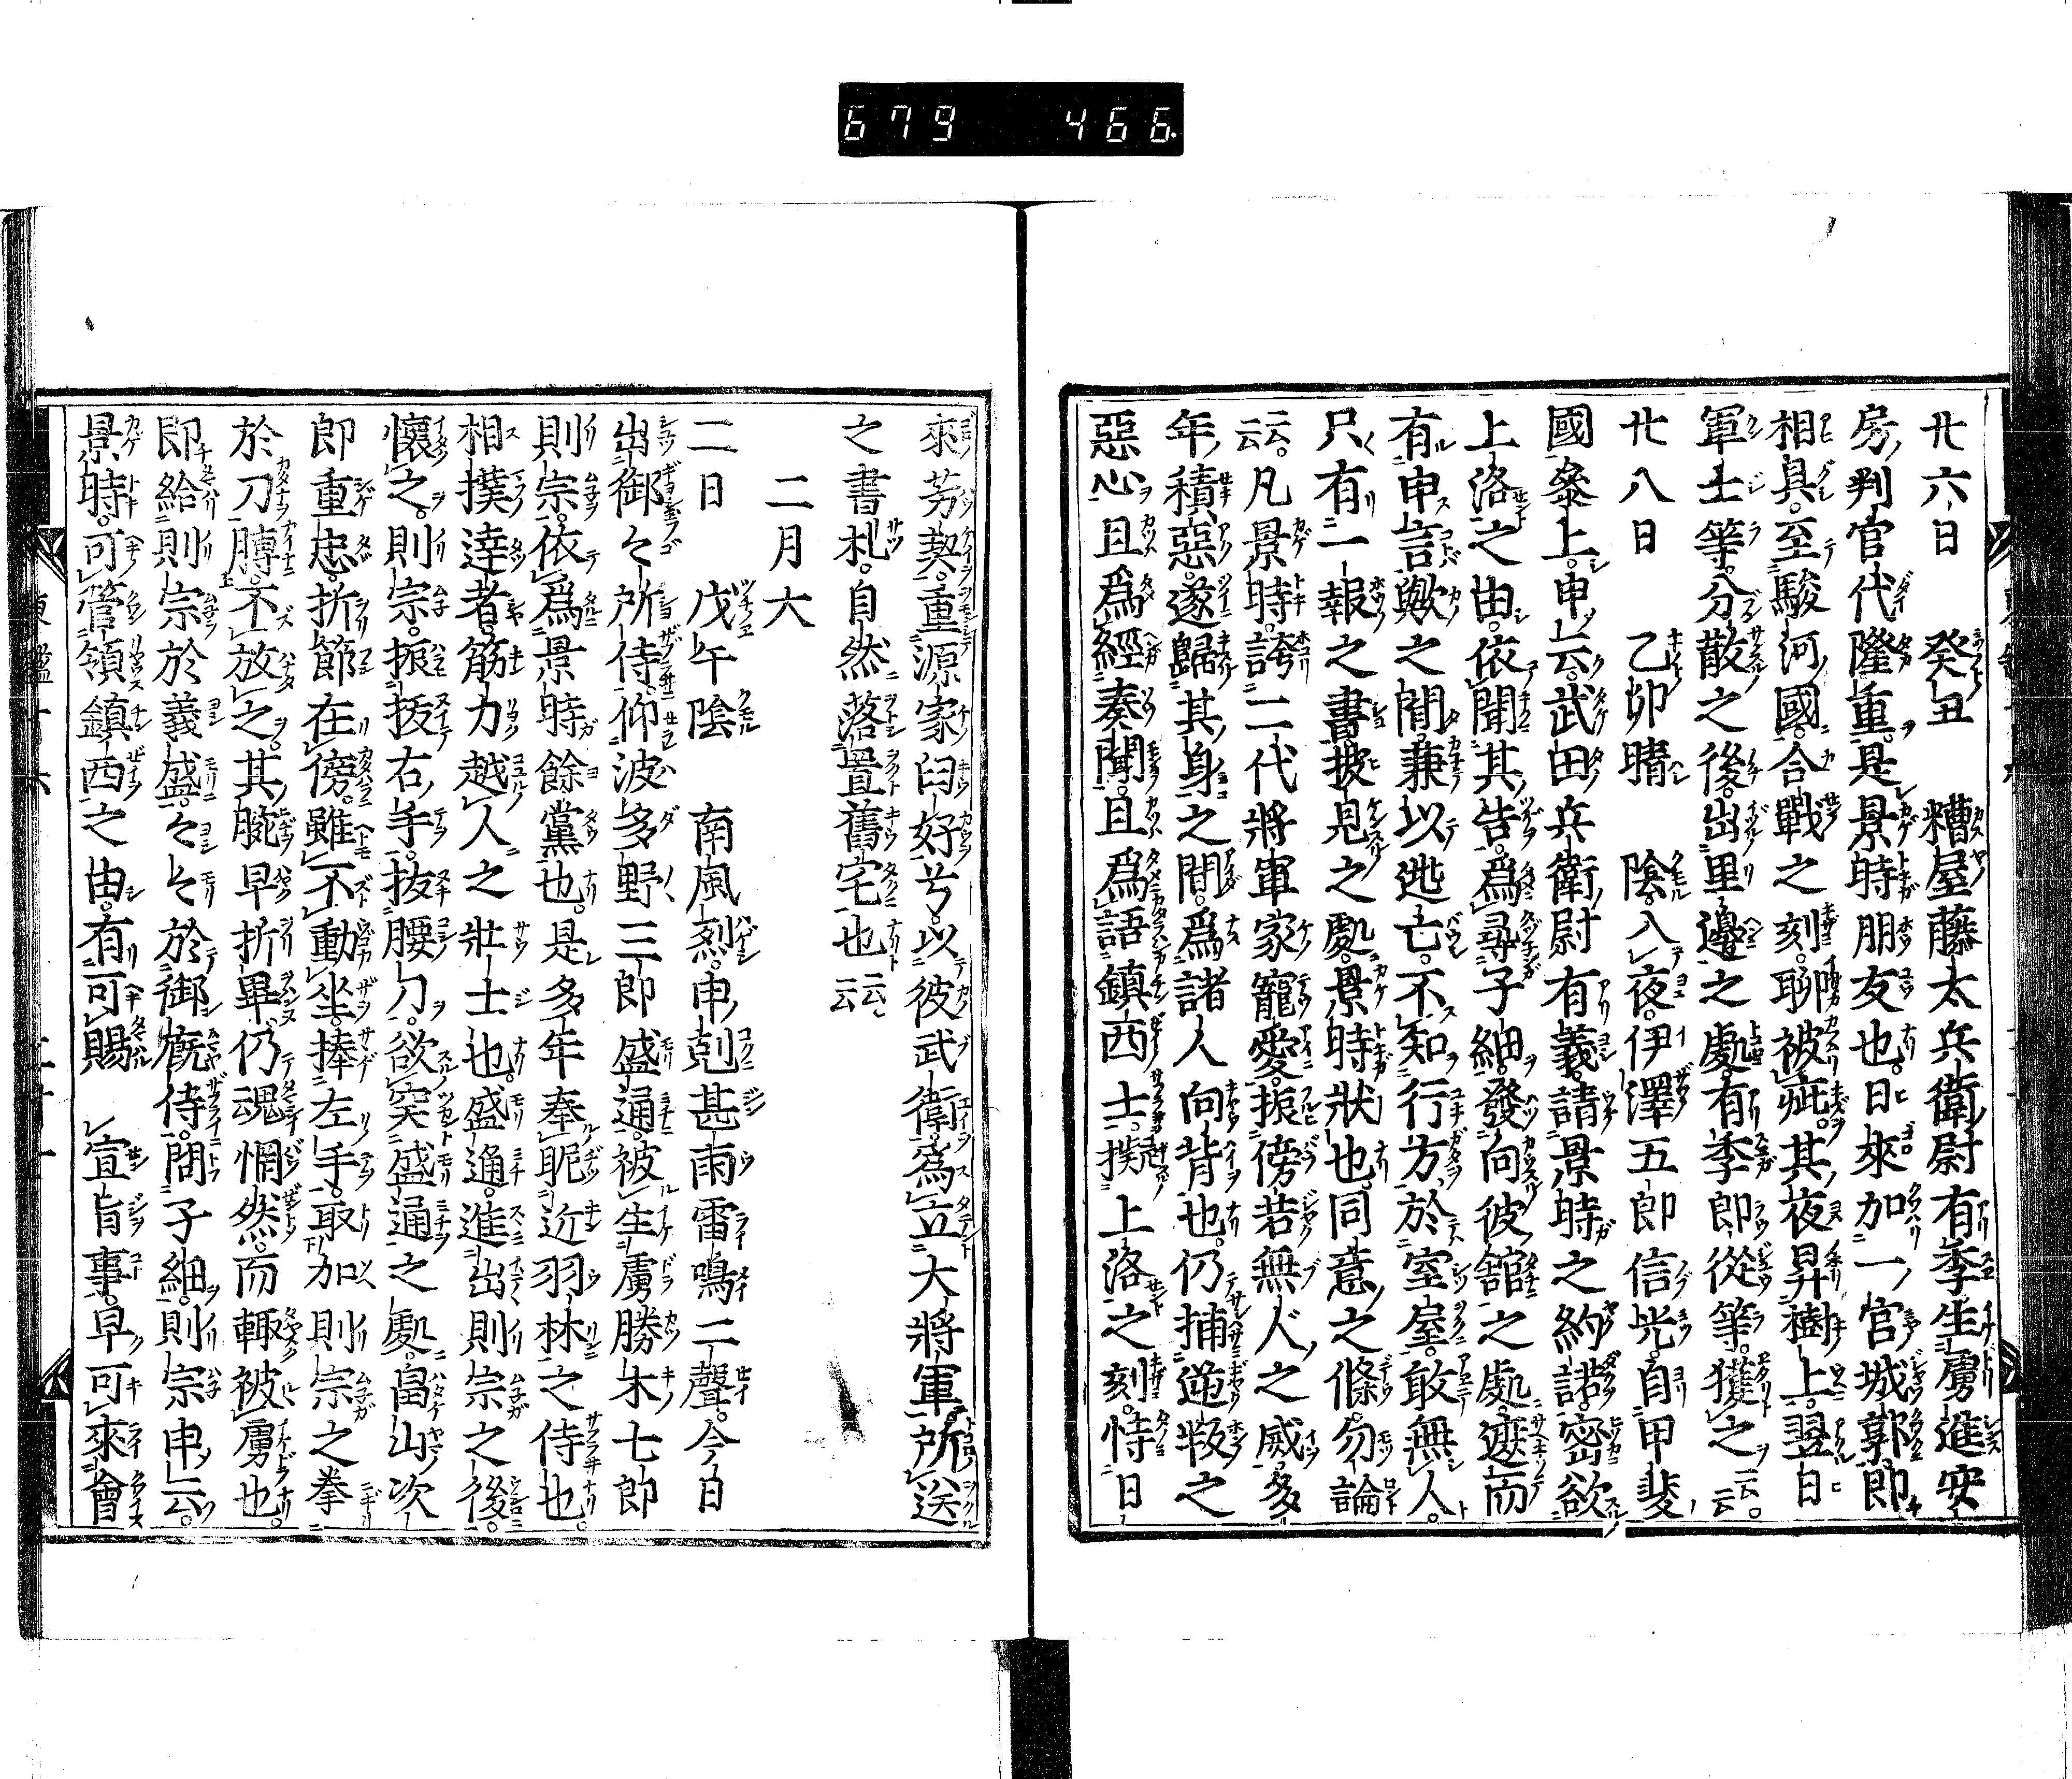 679 466
廿六日 癸丑 糟屋藤太兵衛尉有季生虜進安
房判官代隆重是景時朋友也日來加一官城郭即
相具至駿河國合戰之刻聊被疵其夜昇樹上翌日
軍士等分散之後出里邊之處有季郎從等獲之云云
廿八日 乙卯晴 陰入夜伊澤五郎信光自甲斐
國參上申云武田兵衛尉有義請景時之約諾密欲
上洛之由依聞其告爲尋子細發向彼舘之處遮而
有申言歟之間兼以逃亡不知行方於室屋敢無人
只有一報之書披見之處景時狀也同意之條勿論
云云凡景時誇二代將軍家寵愛振傍若無人之威多
年積惡遂歸其身之間爲諸人向背也仍捕逆叛之
惡心且爲經奏聞且爲語鎮西士撲上洛之刻恃日
來芳契重源家臼好兮以彼武衛爲立大將軍所送
之書札自然落置舊宅也云云
二月大
二日 戊午陰 南風烈申剋甚雨雷鳴二聲今日
出御々所侍仰波多野三郎盛通被生虜勝木七郎
則宗依爲景時餘黨也是多年奉昵近羽林之侍也
相撲達者筋力越人之壯士也盛通進出則宗之後
懷之則宗振拔右手拔腰刀欲突盛通之處畠山次
郎重忠折節在傍雖不動坐捧左手取加則宗之拳
於刀膊不放之其腕早折畢仍魂惘然而輙被虜也
即給則宗於義盛々々於御廐侍問子細則宗申云
景時可管領鎮西之由有可賜 宣旨事早可來會